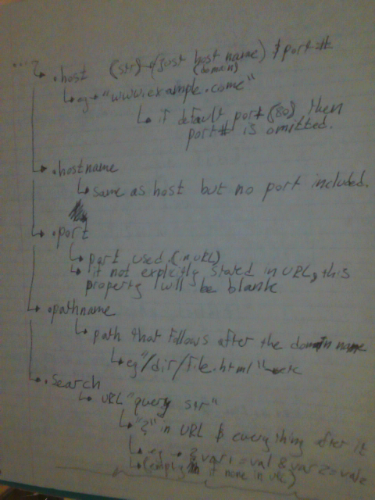 ...?
.host (str) of just host name) & port #
(domain)
eg → "www.example.come"
I default port (80) then
port # is omitted.
.hostname
same as host but no port included.
.port
port used (in URL)
if not explicitly stated in URL, this
property will be blank
.pathname
path that follows after the domain name
eg "/dir/file.html" etc
.search
URL "query str"
"?" in URL & everything after it
eg → ? var1 = val & var2 = vale
(empty if none in URL)